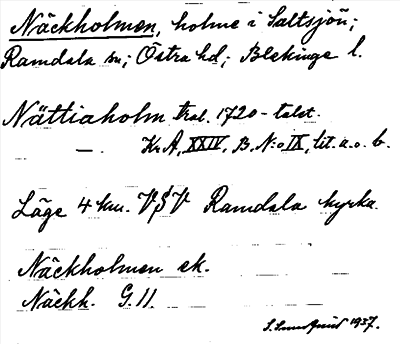 Näckholmen, holme i Saltsjön;
Ramdala sn; Östra hd; Blekinge l.
Nättiaholm trol. 1720-talet.
— Kr.A, XXIV, B. N:o IX, lit. a. o. b.
Läge 4 km. VSV Ramdala kyrka.
Näckholmen ek.
Näckh. G. 11.
S. Lundquist 1937.